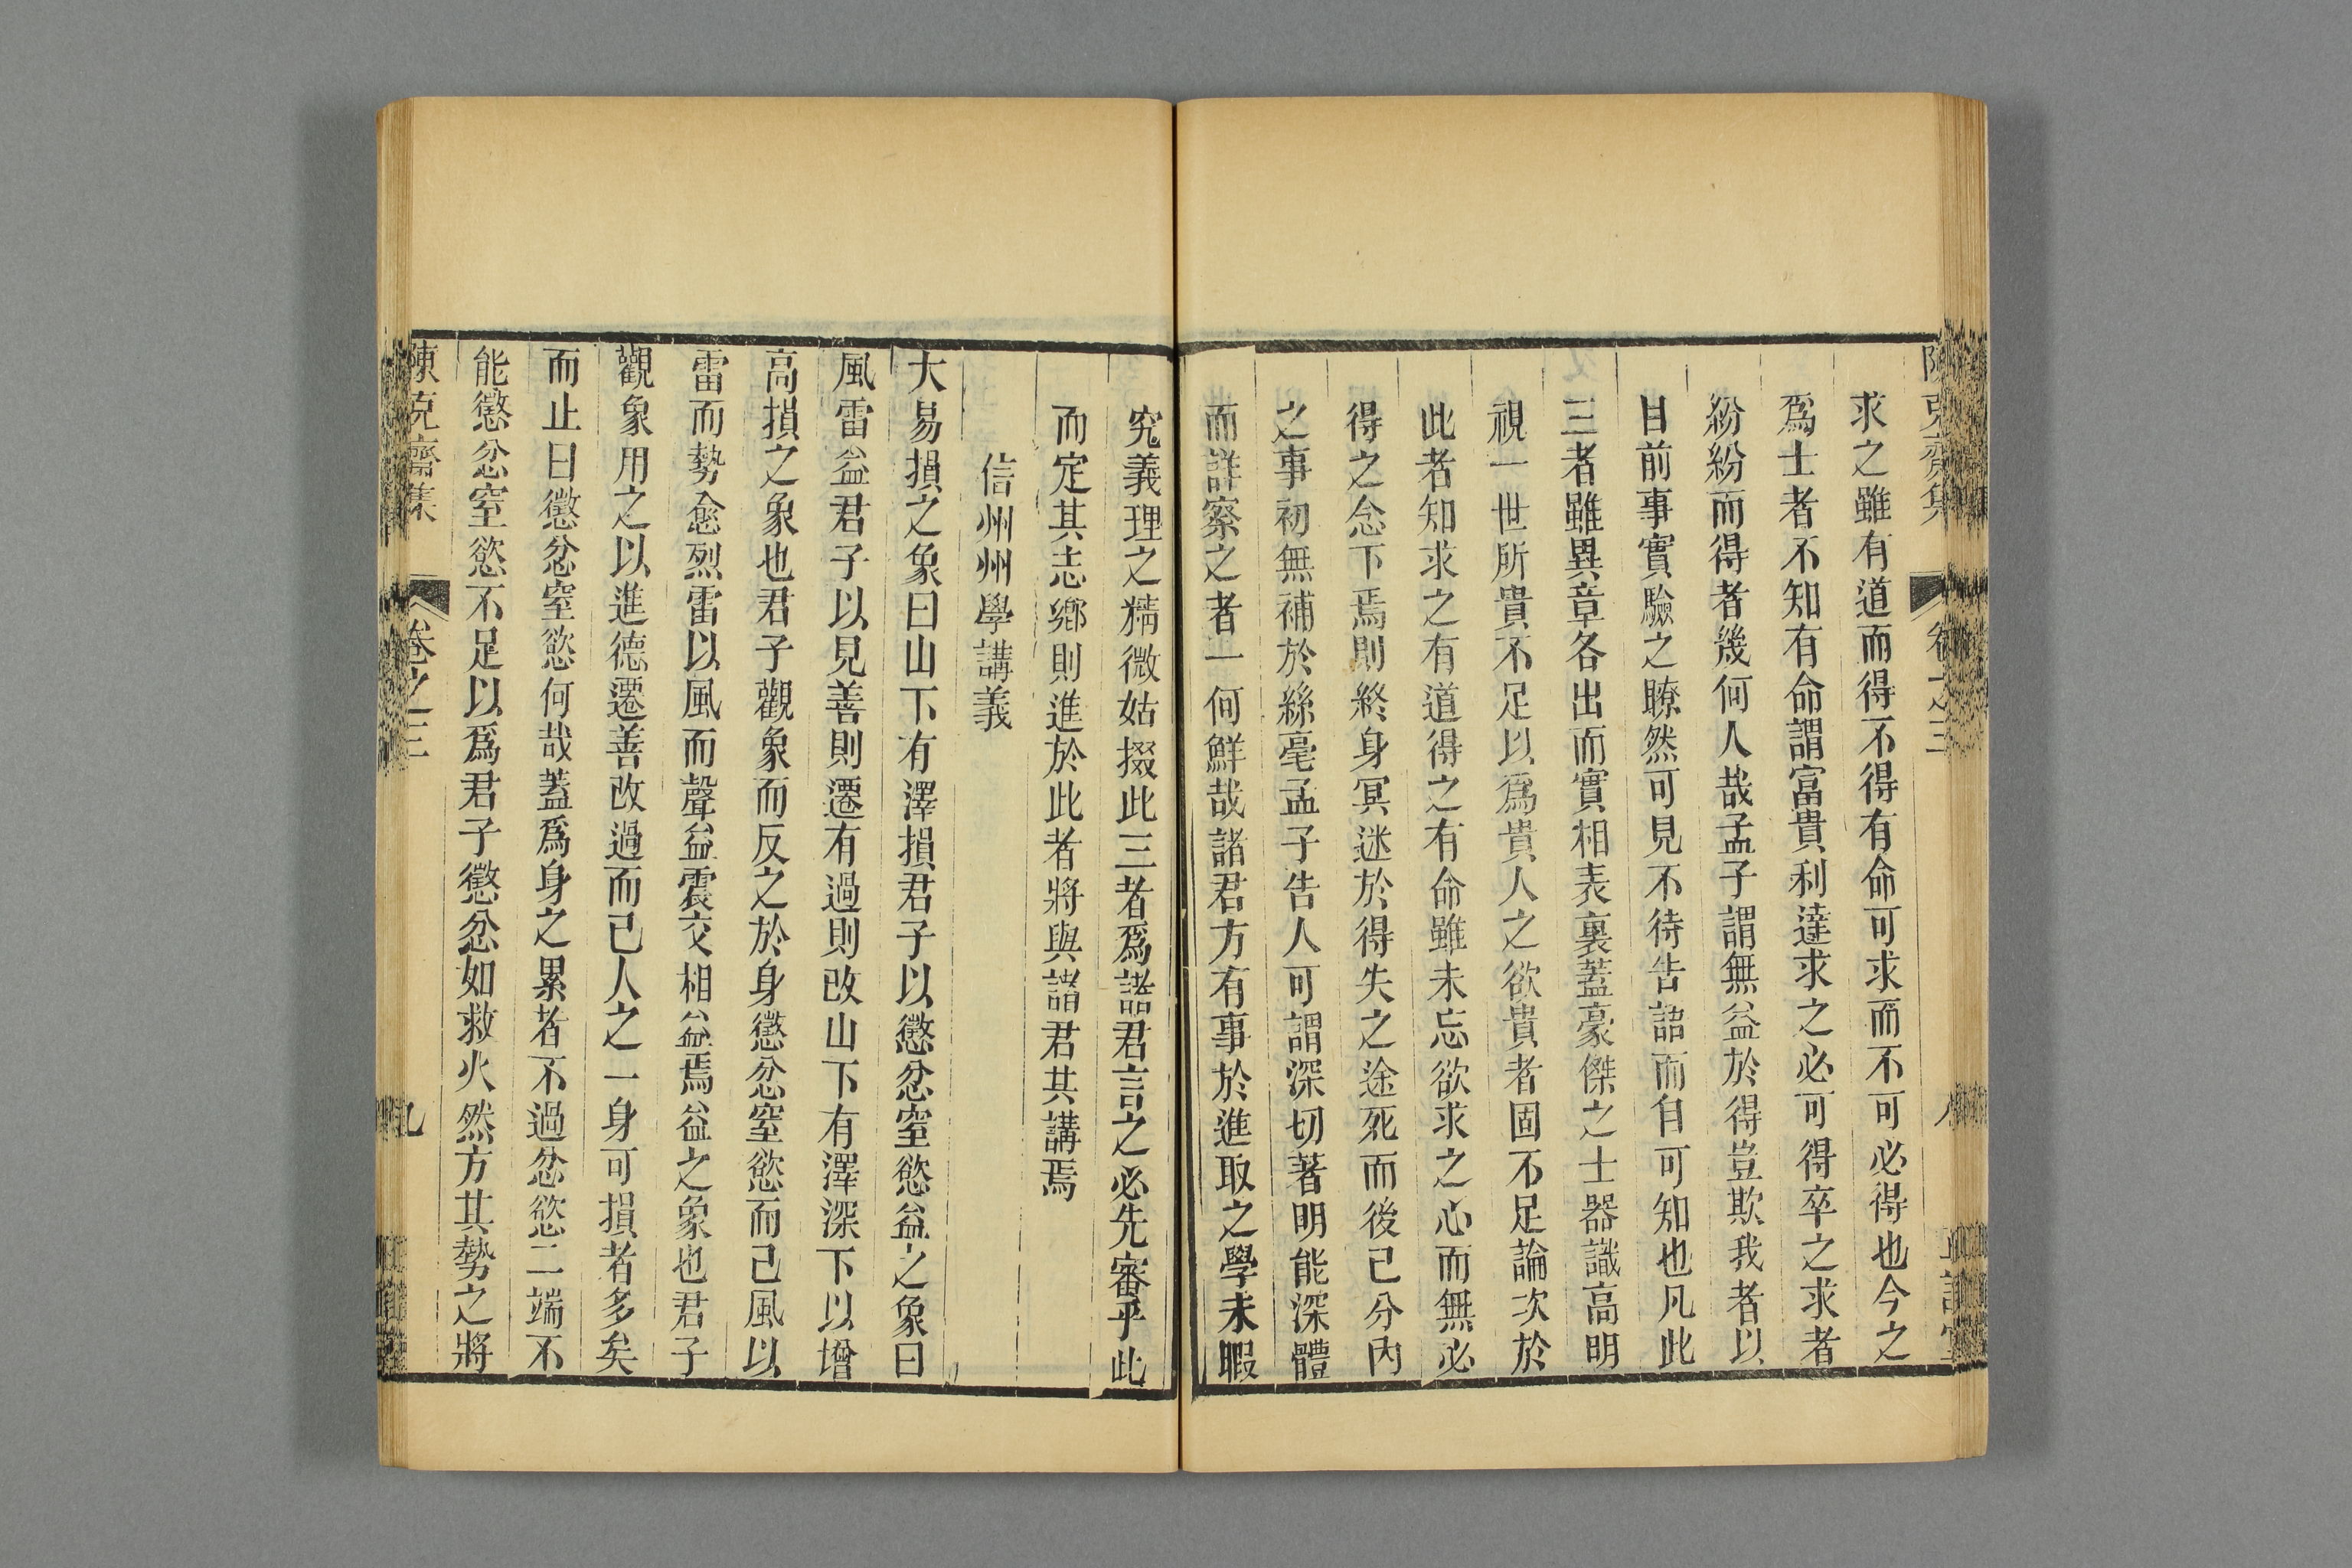 求之雖有道而得不得有命可求而不可必得也今之
爲士者不知有命謂富貴利達求之必可得卒之求者
紛紛而得者幾何人哉孟子謂無益於得豈欺我者以
目前事實驗之瞭然可見不待告語而自可知也凡此
三者雖異章各出而實相表裏蓋豪傑之士器識高明
視一世所貴不足以爲貴人之欲貴者固不足論次於
此者知求之有道得之有命雖未忘欲求之心而無必
得之念下焉則終身冥迷於得失之途死而後已分內
之事初無補於絲毫孟子告人可謂深切著明能深體
而詳察之者一何鮮哉諸君方有事於進取之學未暇
究義理之精微姑掇此三者爲諸君言之必先審乎此
而定其志鄉則進於此者將與諸君其講焉
信州州學講義
大易損之象曰山下有澤損君子以懲忿窒慾益之象曰
風雷益君子以見善則遷有過則改山下有澤深下以增
高損之象也君子觀象而反之於身懲忿窒慾而已風以
雷而勢愈烈雷以風而聲益震交相益焉益之象也君子
觀象用之以進德遷善改過而已人之一身可損者多矣
而止曰懲忿窒慾何哉蓋爲身之累者不過忿慾二端不
能懲忿窒慾不足以爲君子懲忿如救火然方其勢之將
陳克齋集
卷之三
九